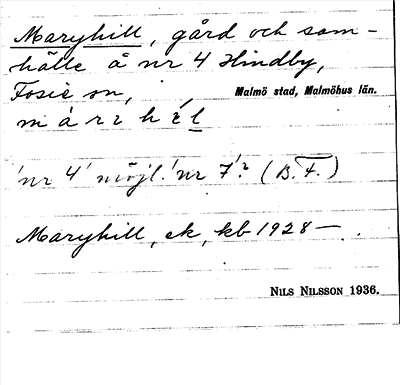 Maryhill, gård och sam-
hälle å nr 4 Hindby,
Fosie sn, Malmö stad, Malmöhus län.
m á r i h é l
'nr 4' möjl. 'nr 7'? (B. F.)
Maryhill, ek, kb 1928 —.
NILS NILSSON 1936.